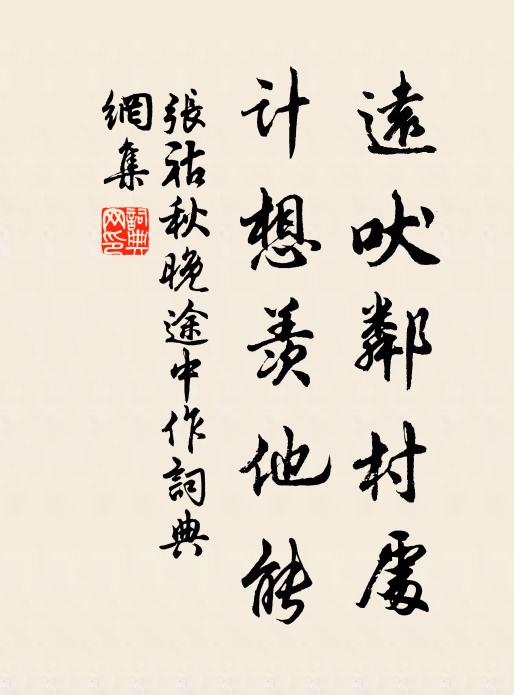 遠吠鄰村處
計想羨他能
張祜秋晚途中作詞典
網集
詞典網印